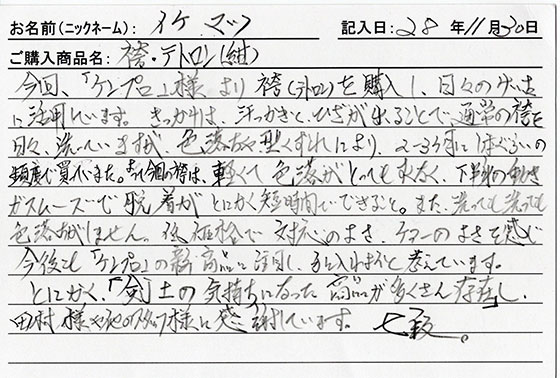 お名前(ニックネーム): イケ マッフ 記入日: 28 年 11 月 30 日
ご購入商品名: 袴・テトロン(紺)
今回、「ケンプロ」様より袴(テトロン)を購入し、日々のけいこ
に活用しています。きっかけは、汗っかきと、ひざが出ることで通常の袴を
日々、洗っていますが、色落ちや型くずれにより、2~3ヶ月に1本ぐらいの
頻度で買っていました。今回の袴は、軽くて色落がとっても少なく、下半身の動きも
がスムーズで脱着がとにかく短時間でできること。また、洗っても洗っても
色落がしません。低価格で対応のよさ、ケアーのよさを感じ
今後も「ケンプロ」の新商品に注目し、手に入れようと考えています。
とにかく、「剣士の気持ちになった商品が多くさん存在し、
田村様や他のスタッフ様に感謝しています。 七段。